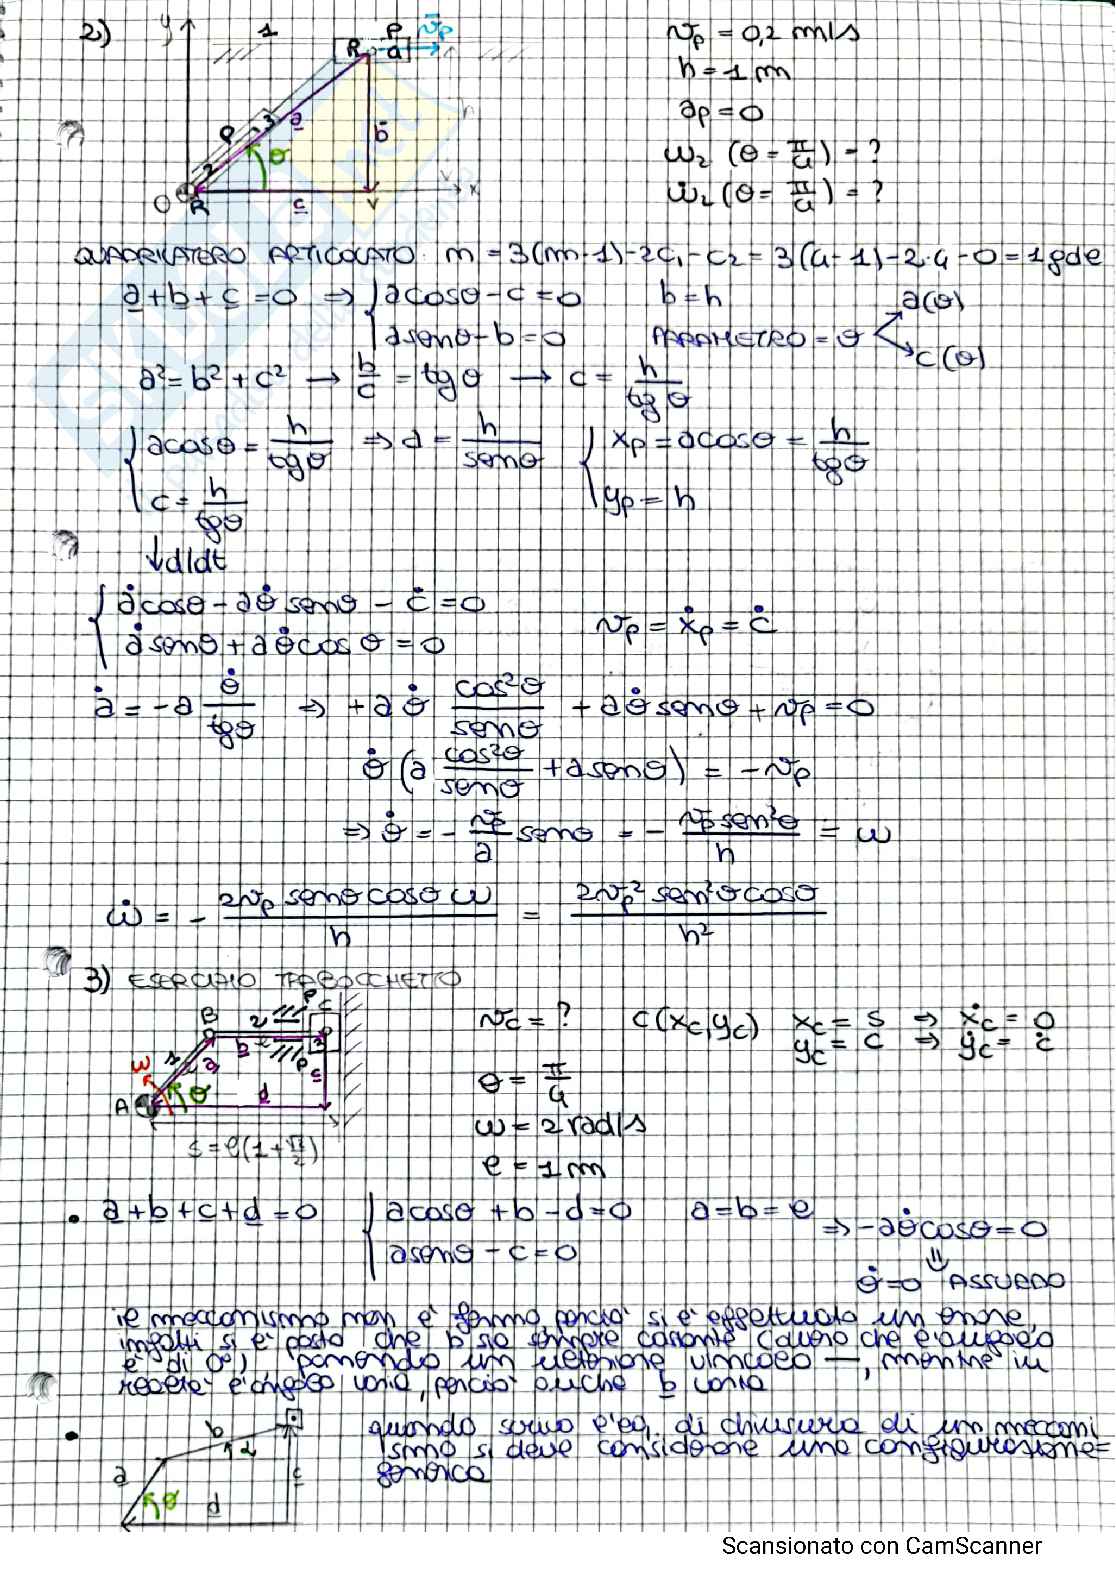 2)
y
1
R
P
v̄p
a
vp = 0,2 m/s
h = 1 m
ap = 0
ω2 (θ = π/4) = ?
ω̇2 (θ = π/4) = ?
P
3
a
b
θ
2
O
R
c
x
QUADRILATERO ARTICOLATO m = 3(m-1)-2c1-c2 = 3(4-1)-2·4-0 = 1gdl
a+b+c=0 ⇒ { acosθ-c=0 b=h a(θ)
asenθ-b=0 PARAMETRO = θ c(θ)
a²=b²+c² → b/c = tgθ → c = h/tgθ
{ acosθ = h/tgθ ⇒ a = h/senθ { xp = acosθ = h/tgθ
c = h/tgθ yp = h
↓d/dt
{ ȧcosθ - aθ̇senθ - ċ = 0
ȧsenθ + aθ̇cosθ = 0 vp = ẋp = ċ
ȧ = -a θ̇/tgθ ⇒ +aθ̇ cos²θ/senθ + aθ̇senθ + vp = 0
θ̇ (a cos²θ/senθ + asenθ) = -vp
⇒ θ̇ = - vp/a senθ = - vp sen²θ/h = ω
ω̇ = - 2vp senθcosθ ω/h = 2vp² sen²θcosθ/h²
3) ESERCIZIO TRABOCCHETTO
B
2
P
C
b
3
1
a
c
ω
θ
d
A
s = l(1+√2/2)
vc = ? C(xc,yc) xc = s ⇒ ẋc = 0
yc = c ⇒ ẏc = ċ
θ = π/4
ω = 2 rad/s
l = 1 m
• a+b+c+d=0 { acosθ + b - d = 0 a=b=l
asenθ - c = 0 ⇒ -aθ̇cosθ = 0
⇓
θ̇=0 ASSURDO
il meccanismo non è fermo perciò si è effettuato un errore,
infatti si è posto che b sia sempre costante (ovvero che l'angolo
è di 0°) ponendo un ulteriore vincolo —, mentre in
realtà l'angolo varia, perciò anche b varia
• b
2
a
θ
d
c
quando scrivo l'eq. di chiusura di un meccani
smo si deve considerare una configurazione
generica
Scansionato con CamScanner